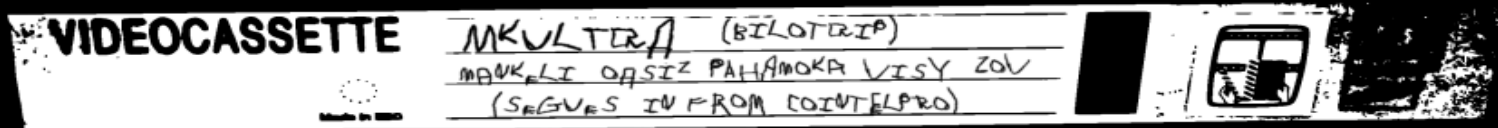 VIDEOCASSETTE
MKULTRA (BILOTRIP)
MANKELI OASIZ PAHAMOKA VISY ZOV
(SEGUES IN FROM COINTELPRO)
Made in